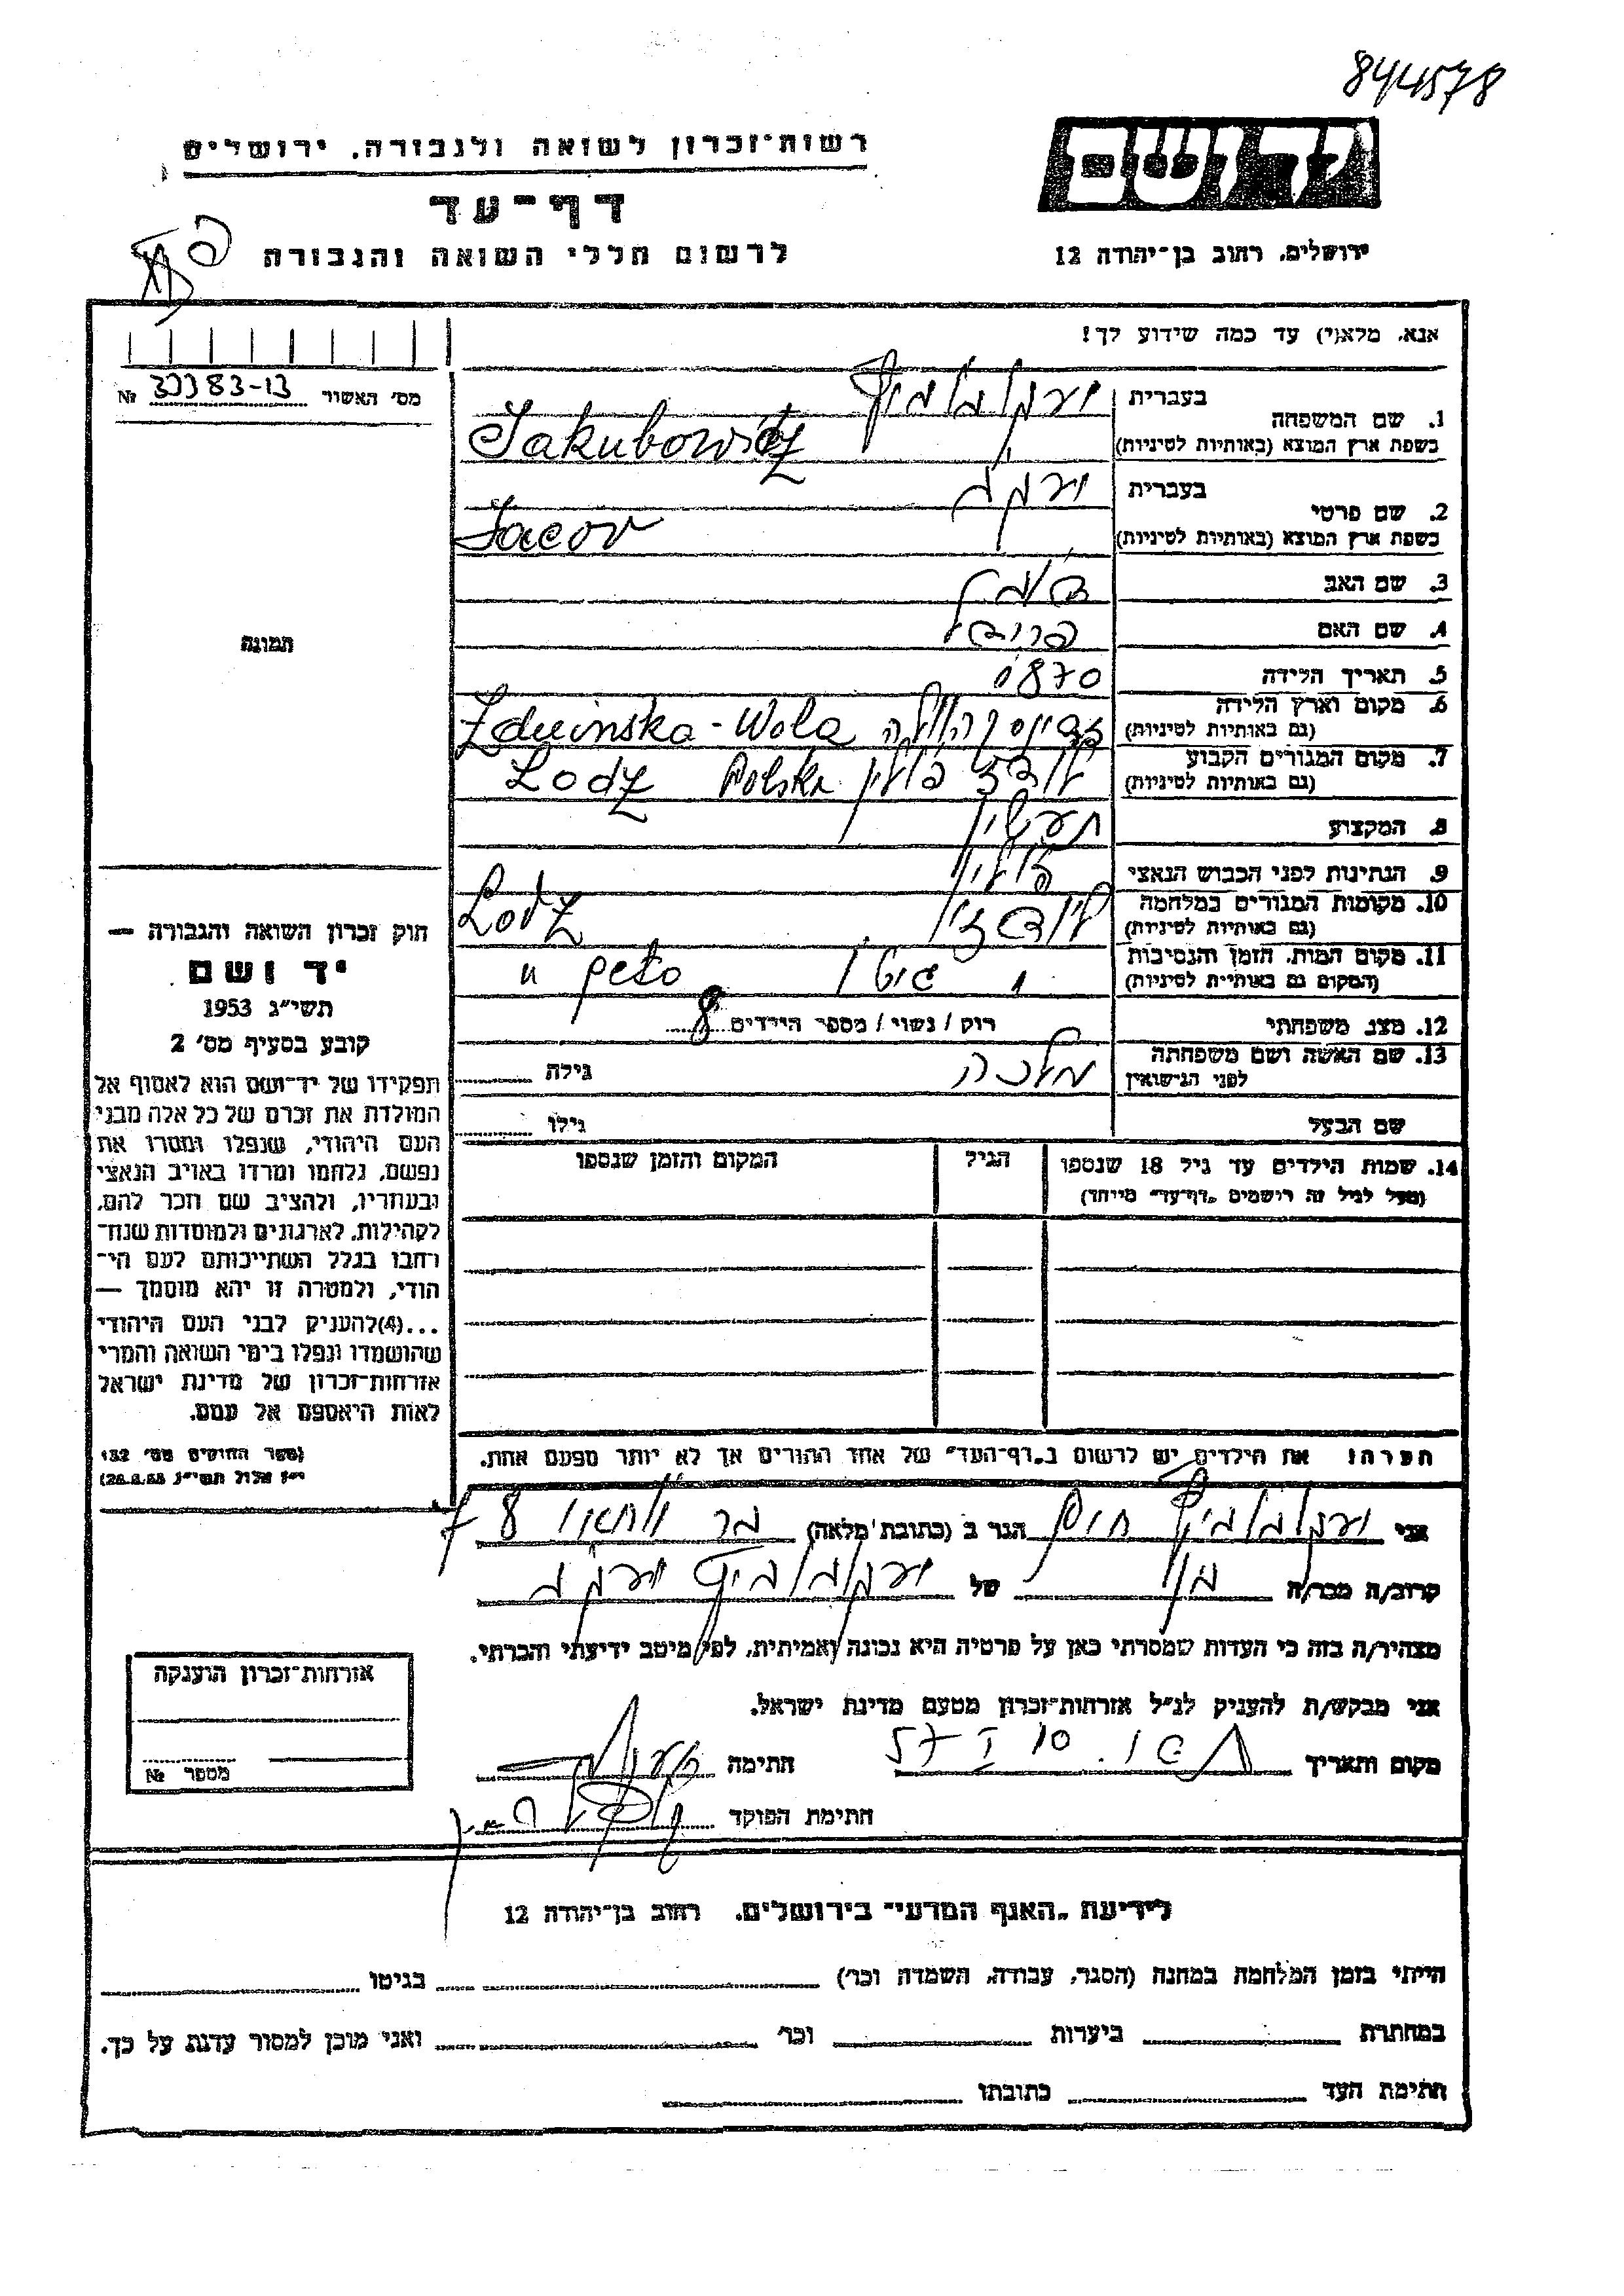 844578
יד ושם
רשות־זכרון לשואה ולגבורה, ירושלים
דף־עד
לרשום חללי השואה והגבורה
ירושלים, רחוב בן־יהודה 12
אנא, מלא(י) עד כמה שידוע לך!
מס׳ האשור 33383-13 №
1. שם המשפחה
בעברית
יעקובוביץ
בשפת ארץ המוצא (באותיות לטיניות)
Jakubowicz
2. שם פרטי
בעברית
יעקב
בשפת ארץ המוצא (באותיות לטיניות)
Jacov
3. שם האב
4. שם האם
5. תאריך הלידה 1870
6. מקום וארץ הלידה
(גם באותיות לטיניות)
Zduinska-Wola
7. מקום המגורים הקבוע
(גם באותיות לטיניות)
לודז פולין Polska Lodz
8. המקצוע תעשין
9. הנתינות לפני הכבוש הנאצי פולין
10. מקומות המגורים במלחמה
(גם באותיות לטיניות)
Lodz
11. מקום המות, הזמן והנסיבות
(המקום גם באותיית לטיניות)
" גיטו
12. מצב משפחתי רוק / נשוי / מספר הילדים 8
13. שם האשה ושם משפחתה
לפני הנישואין
מלכה
גילה
שם הבעל
גילו
14. שמות הילדים עד גיל 18 שנספו
(מעל לגיל זה רישמים „דף־עד״ מייחד)
הגיל
המקום והזמן שנספו
הערה: את הילדים יש לרשום ב„דף־העד״ של אחד ההורים אך לא יותר מפעם אחת.
תמונה
חוק זכרון השואה והגבורה —
יד ושם
תשי״ג 1953
קובע בסעיף מס׳ 2
תפקידו של יד־ושם הוא לאסוף אל
המולדת את זכרם של כל אלה מבני
העם היהודי, שנפלו ומסרו את
נפשם, נלחמו ומרדו באויב הנאצי
ובעוזריו, ולהציב שם וזכר להם,
לקהילות, לארגונים ולמוסדות שנח־
רחבו בגלל השתייכותם לעם הי־
הודי, ולמטרה זו יהא מוסמך —
...(4)להעניק לבני העם היהודי
שהושמדו ונפלו בימי השואה והמרי
אזרחות־זכרון של מדינת ישראל
לאות היאספם אל עמם.
(ספר החוקים מס׳ 132
י״ז אלול תשי״ג 28.8.53)
אני יעקובוביץ חיים הגר ב (כתובת מלאה)
קרוב/ה מכר/ה בן של יעקובוביץ יעקב
מצהיר/ה בזה כי העדות שמסרתי כאן על פרטיה היא נכונה ואמיתית, לפי מיטב ידיעתי והכרתי.
אני מבקש/ת להעניק לנ״ל אזרחות־זכרון מטעם מדינת ישראל.
מקום ותאריך 10 I 57 חתימה
חתימת הפוקד
אזרחות־זכרון הוענקה
מספר №
לידיעת „האגף המדעי״ בירושלים, רחוב בן־יהודה 12
הייתי בזמן המלחמה במחנה (הסגר, עבודה, השמדה וכו׳) בגיטו
במחתרת ביערות וכו׳ ואני מוכן למסור עדות על כך.
חתימת העד כתובתו